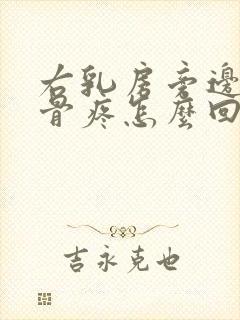 右乳房旁邊
骨疼怎麼回
吉永克也